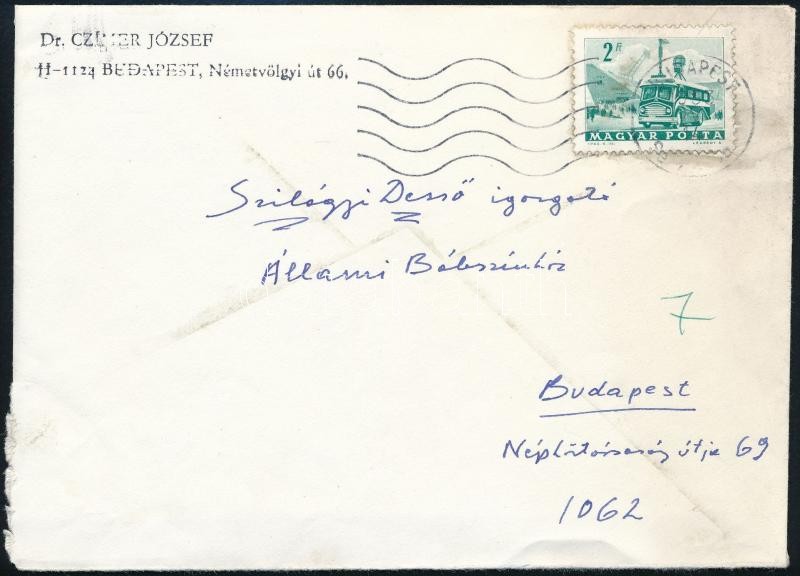 Dr. CZÍMER JÓZSEF
H-1124 BUDAPEST, Németvölgyi út 66.
2 Ft
MAGYAR POSTA
BUDAPEST
Szilágyi Dezső igazgató
Állami Bábszínház
7
Budapest
Népköztársaság útja 69
1062